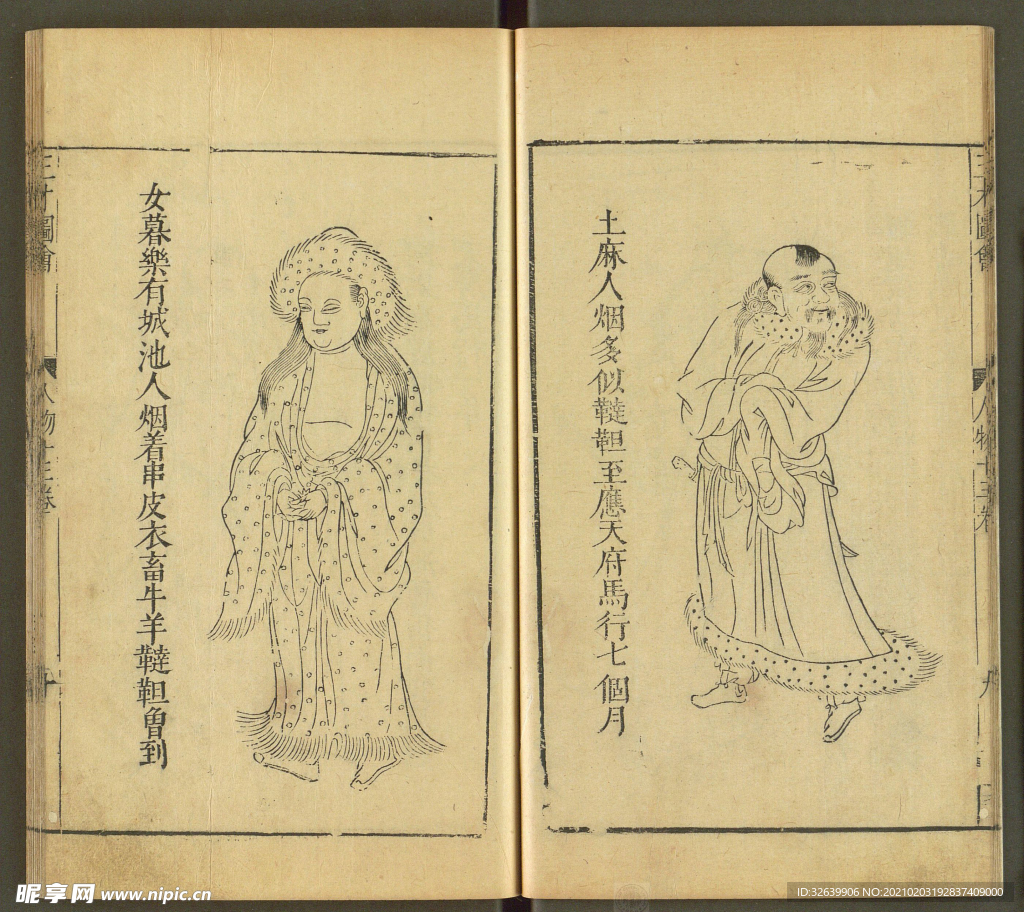 三才圖會
人物十三卷
土麻人烟多似韃靼至應天府馬行七個月
女暮樂有城池人烟着串皮衣畜牛羊韃靼曾到
三才圖會
人物十三卷
昵享网 www.nipic.cn
ID:32639906 NO:20210203192837409000